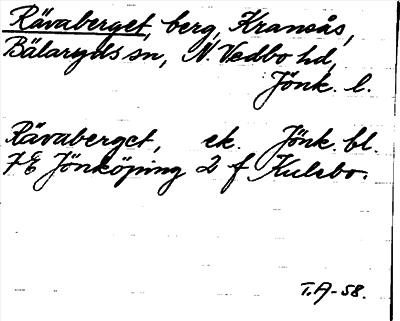 Rävaberget, berg, Kransås,
Bälaryds sn, N. Vedbo hd,
Jönk. l.
Rävaberget, ek. Jönk. bl.
7E Jönköping 2 f Kulsbo.
T.A-58.